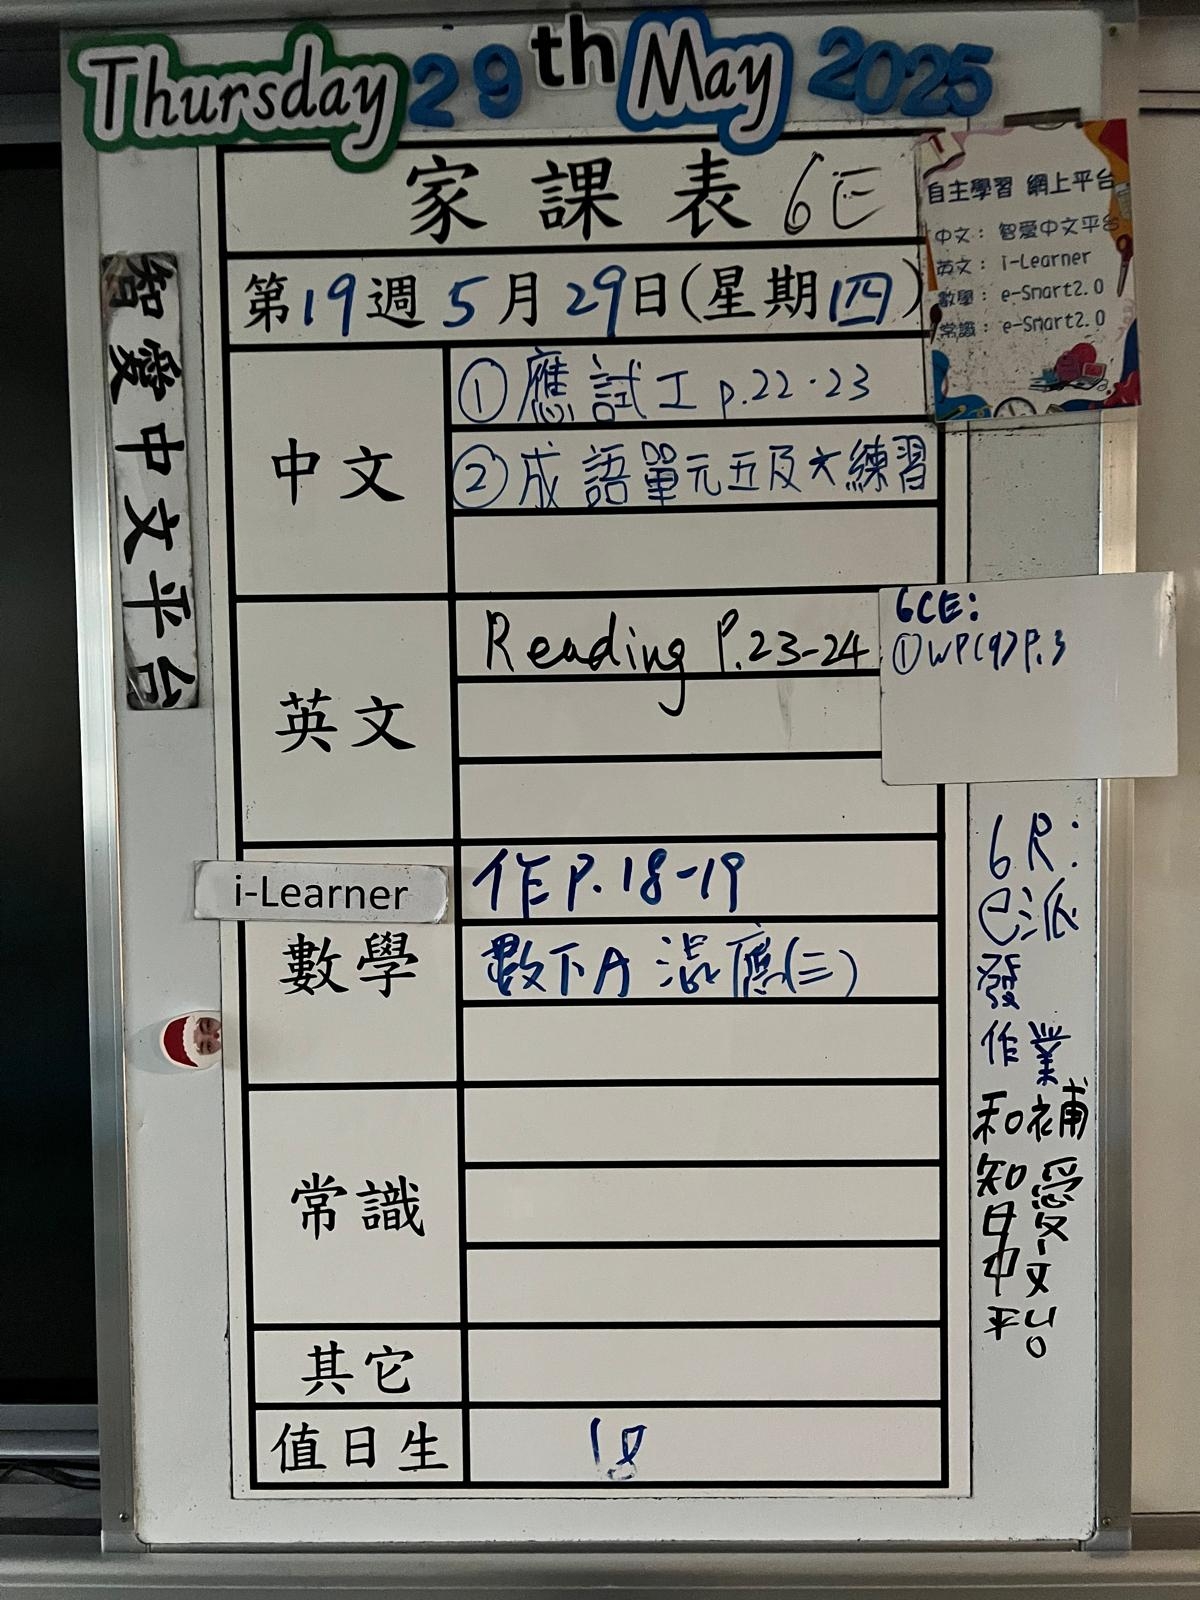 Thursday 29th May 2025
家課表 6E
第19週5月29日(星期四)
自主學習 網上平台
中文： 智愛中文平台
英文： i-Learner
數學： e-Smart2.0
常識： e-Smart2.0
智愛中文平台
中文
①應試工 p.22-23
②成語單元五及大練習
英文
Reading P.23-24
6CE:
①WP(9)P.3
i-Learner
數學
作P.18-19
數下A 混應(三)
常識
其它
值日生
18
6R:
已派
發
作業
和補
智愛
中文
平台